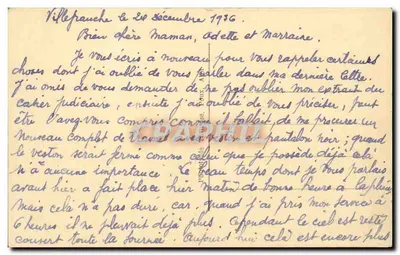 Villefranche le 20 Décembre 1936.
Bien chère Maman, Odette et Marraine.
Je vous écris à nouveau pour vous rappeler certaines
choses dont j'ai oublié de vous parler dans ma dernière lettre.
J'ai omis de vous demander de ne pas oublier mon extrait du
casier judiciaire, ensuite j'ai oublié de vous préciser, peut
être l'avez-vous compris comme il fallait, de me procurer un
nouveau complet de pantalon noir; quand
le veston serait fermé comme celui que je possède déjà cela
n'a aucune importance. Le beau temps dont je vous parlais
avant hier a fait place hier matin de bonne heure à la pluie
mais cela n'a pas duré car quand j'ai pris mon service à
6 heures il ne pleuvait déjà plus. Cependant le ciel est resté
couvert toute la journée. Aujourd'hui cela est encore plus